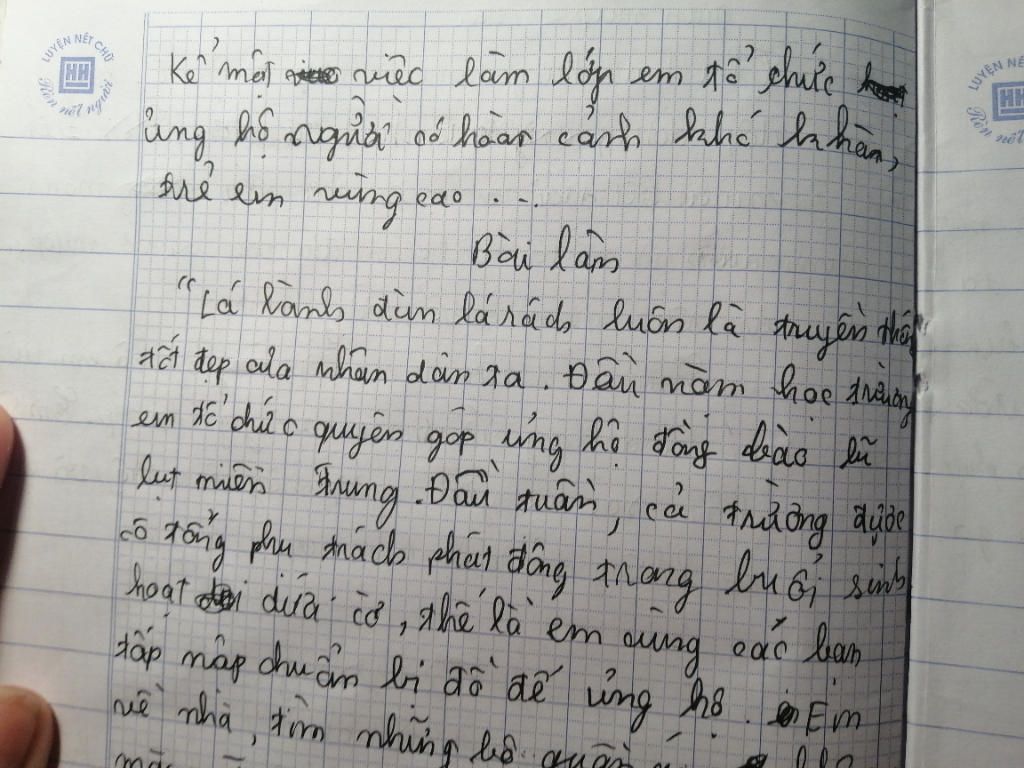 LUYỆN NÉT CHỮ
HH
Rèn nết người
LUYỆN NÉT
HH
Rèn nết
Kể một việc làm lớp em tổ chức
ủng hộ người có hoàn cảnh khó khăn,
trẻ em vùng cao ...
Bài làm
"Lá lành đùm lá rách luôn là truyền thống
tốt đẹp của nhân dân ta. Đầu năm học trường
em tổ chức quyên góp ủng hộ đồng bào lũ
lụt miền Trung. Đầu tuần, cả trường được
cô tổng phụ trách phát động trong buổi sinh
hoạt dưới cờ, thế là em cùng các bạn
tấp nập chuẩn bị đồ để ủng hộ. Em
về nhà, tìm những bộ quần